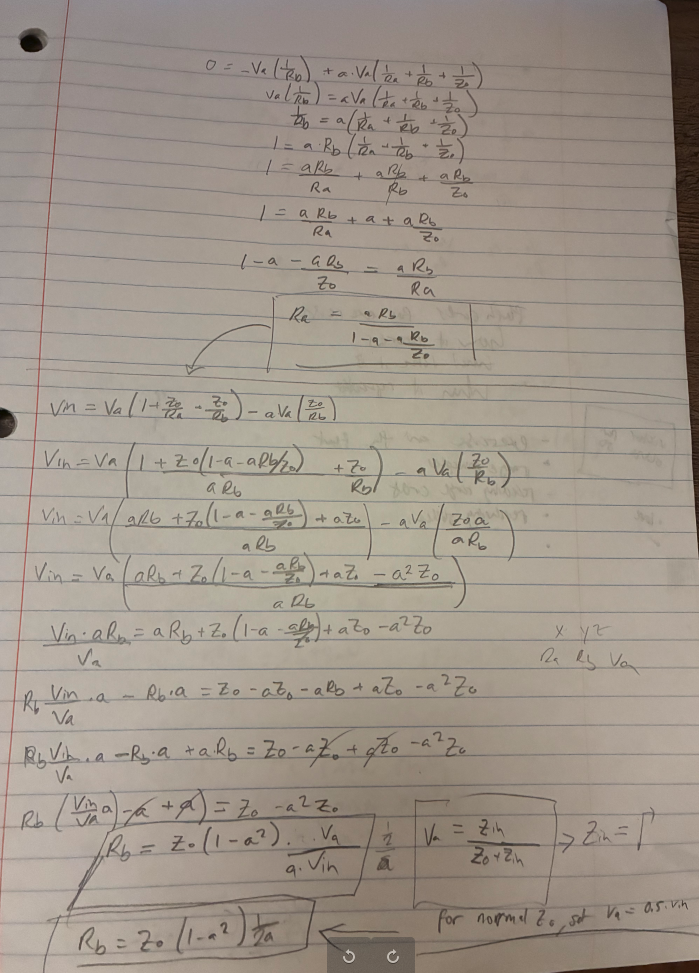 0 = -Va(1/Rb) + a·Va(1/Ra + 1/Rb + 1/Zo)
Va(1/Rb) = aVa(1/Ra + 1/Rb + 1/Zo)
1/Rb = a(1/Ra + 1/Rb + 1/Zo)
1 = a·Rb(1/Ra + 1/Rb + 1/Zo)
1 = aRb/Ra + aRb/Rb + aRb/Zo
1 = aRb/Ra + a + aRb/Zo
1 - a - aRb/Zo = aRb/Ra
Ra = aRb/(1 - a - aRb/Zo)
Vin = Va(1 + Zo/Ra + Zo/Rb) - aVa(Zo/Rb)
Vin = Va(1 + Zo(1-a-aRb/Zo)/aRb + Zo/Rb) - aVa(Zo/Rb)
Vin = Va((aRb + Zo(1-a-aRb/Zo) + aZo)/aRb) - aVa(Zoa/aRb)
Vin = Va((aRb + Zo(1-a-aRb/Zo) + aZo - a²Zo)/aRb)
Vin·aRb/Va = aRb + Zo(1-a-aRb/Zo) + aZo - a²Zo
x y z
Ra Rb Va
Rb Vin/Va·a - Rb·a = Zo - aZo - aRb + aZo - a²Zo
Rb Vin/Va·a - Rb·a + a·Rb = Zo - aZo + aZo - a²Zo
Rb(Vin/Va a - a + a) = Zo - a²Zo
Rb = Zo(1-a²)·Va/(a·Vin)
Va = Zin/(Zo+Zin) → Zin =
for normal Zo, set Va = 0.5·Vin
Rb = Zo(1-a²)1/2a